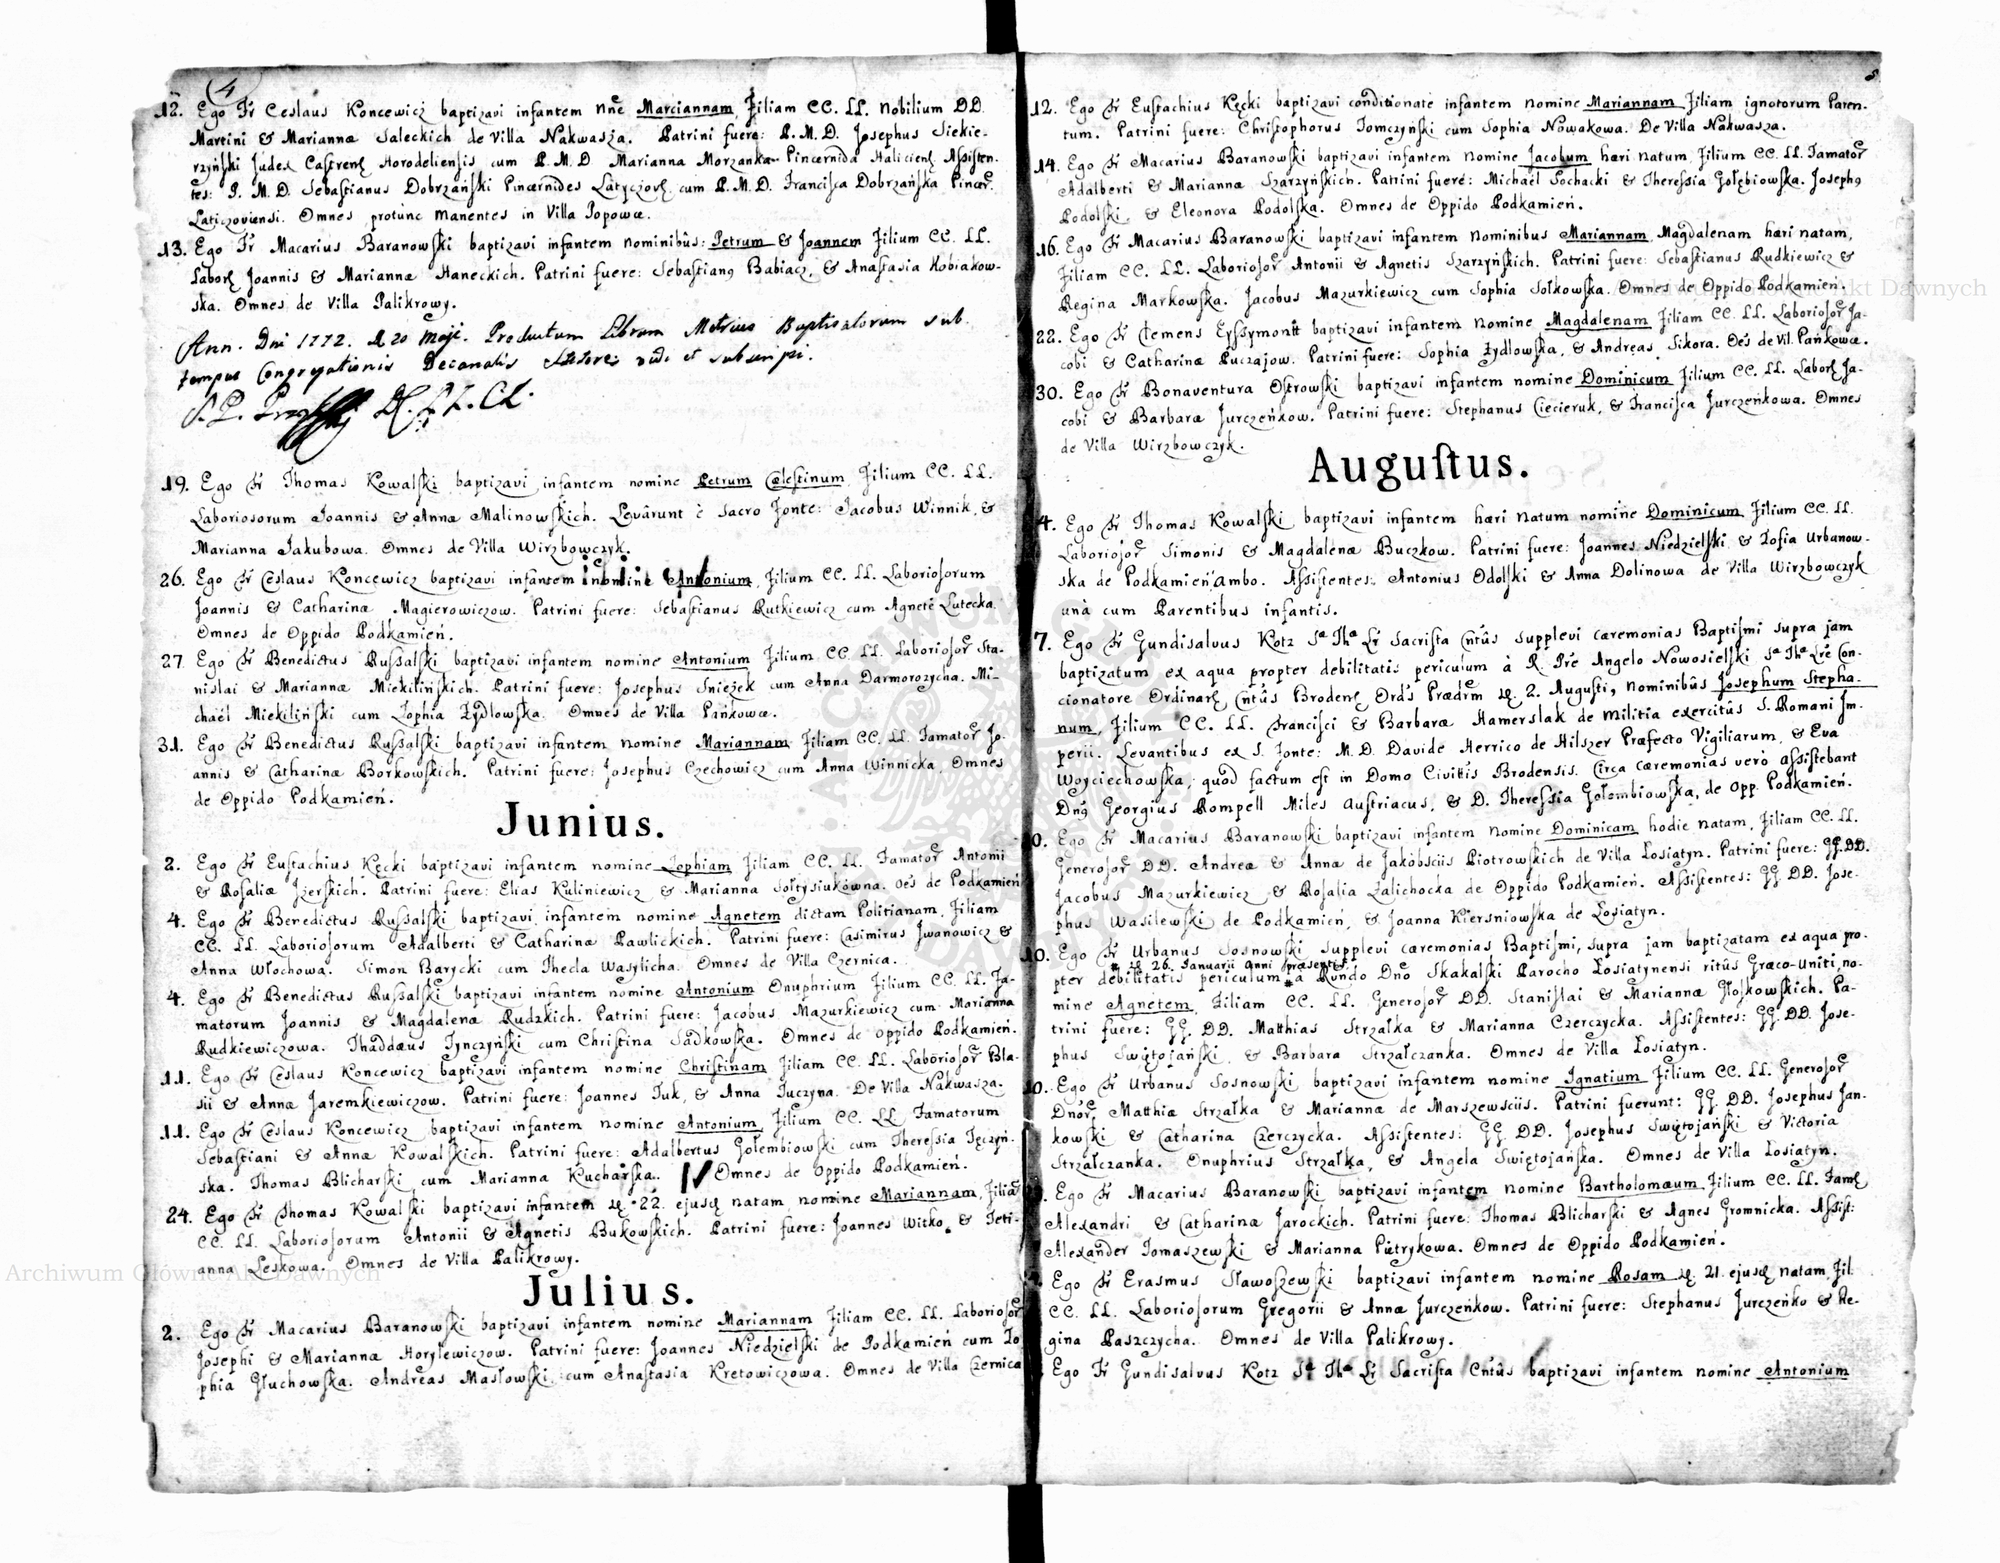 4
12. Ego Fr Ceslaus Koncewicz baptizavi infantem nne Marciannam, Filiam CC. LL. Nobilium DD.
Martini & Mariannæ Saleckich de Villa Nakwasza. Patrini fuere: P. M. D. Josephus Siekie-
rzyński Judex Castrens Horodeliensis cum P. M. D Marianna Morzanka Pincernida Haliciens. Assisten-
tes: P. M. D. Sebastianus Dobrzański Pincernides Latyczovs cum P. M. D. Francisca Dobrzańska Pincer.
Laticzoviensi. Omnes protunc manentes in Villa Popowce.
13. Ego Fr Macarius Baranowski baptizavi infantem nominibûs: Petrum & Joannem Filium CC. LL.
Labor Joannis & Mariannæ Haneckich. Patrini fuere: Sebastian9 Babiacz, & Anastasia Kobiakow-
ska. Omnes de Villa Palikrowy.
Ann. Dni 1772. d 20 Maji. Productum Librum Metrices Baptisatorum sub
tempus Congregationis Decanalis vidi et subscripsi.
19. Ego Fr Thomas Kowalski baptizavi infantem nomine Petrum Cœlestinum Filium CC. LL.
Laboriosorum Joannis & Annæ Malinowskich. Levârunt è Sacro Fonte: Jacobus Winnik, &
Marianna Jakubowa. Omnes de Villa Wirzbowczyk.
26. Ego Fr Ceslaus Koncewicz baptizavi infantem nomine Antonium, Filium CC. LL. Laboriosorum
Joannis & Catharinæ Magierowiczow. Patrini fuere: Sebastianus Rutkiewicz cum Agnete Lutecka.
Omnes de Oppido Podkamień.
27 Ego Fr Benedictus Russalski baptizavi infantem nomine Antonium Filium CC. LL. Laborior Sta-
nislai & Mariannæ Miekilińskich. Patrini fuere: Josephus Snieżek cum Anna Darmorozycha. Mi-
chaël Miekiliński cum Zophia Żydlowska. Omnes de Villa Pańkowce.
31. Ego Fr Benedictus Russalski baptizavi infantem nomine Mariannam Filiam CC. LL. Famator Jo-
annis & Catharinæ Borkowskich. Patrini fuere: Josephus Czechowicz cum Anna Winnicka, Omnes
de Oppido Podkamień.
Junius.
2. Ego Fr Eustachius Kęcki baptizavi infantem nomine Zophiam Filiam CC. LL. Famator Antonii
& Rosaliæ Jzerskich. Patrini fuere: Elias Kuliniewicz & Marianna Sołtysiukówna. Oes de Podkamień
4. Ego Fr Benedictus Russalski baptizavi infantem nomine Agnetem dictam Politianam, Filiam
CC. LL. Laboriosorum Adalberti & Catharinæ Pawlickich. Patrini fuere: Casimirus Jwanowicz &
Anna Włochowa. Simon Barycki cum Thecla Wasylicha. Omnes de Villa Czernica.
4. Ego Fr Benedictus Russalski baptizavi infantem nomine Antonium Onuphrium Filium CC. LL. Fa-
matorum Joannis & Magdalenæ Rudzkich. Patrini fuere: Jacobus Mazurkiewicz cum Marianna
Rudkiewiczowa. Thaddæus Tynczyński cum Christina Sadkowska. Omnes de Oppido Podkamień.
11. Ego Fr Ceslaus Koncewicz baptizavi infantem nomine Christinam Filiam CC. LL. Laborior Bla-
sii & Annæ Jaremkiewiczow. Patrini fuere: Joannes Tuk, & Anna Tuczyna. De Villa Nakwasza.
11. Ego Fr Ceslaus Koncewicz baptizavi infantem nomine Antonium, Filium CC. LL Famatorum
Sebastiani & Annæ Kowalskich. Patrini fuere: Adalbertus Gołembiowski cum Theressia Tęczyń-
ska. Thomas Blicharski cum Marianna Kucharska. Omnes de Oppido Podkamień.
24. Ego Fr Thomas Kowalski baptizavi infantem d. 22. ejusd natam nomine Mariannam, Filia
CC. LL. Laboriosorum Antonii & Agnetis Bukowskich. Patrini fuere: Joannes Witko, & Teti-
anna Leskowa. Omnes de Villa Palikrowy.
Julius.
2. Ego Fr Macarius Baranowski baptizavi infantem nomine Mariannam Filiam CC. LL. Laborior
Josephi & Mariannæ Horylewiczow. Patrini fuere: Joannes Niedzielski de Podkamień cum Zo
phia Głuchowska. Andreas Masłowski cum Anastasia Kretowiczowa. Omnes de Villa Czernica
5
12. Ego Fr Eustachius Kęcki baptizavi conditionate infantem nomine Mariannam Filiam ignotorum Paren-
tum. Patrini fuere: Christophorus Tomczyński cum Sophia Nowakowa. De Villa Nakwasza.
14. Ego Fr Macarius Baranowski baptizavi infantem nomine Jacobum hæri natum, Filium CC. LL. Famator
Adalberti & Mariannæ Szarzyńskich. Patrini fuere: Michaël Sochacki & Theressia Gołębiowska. Joseph9
Podolski, & Eleonora Podolska. Omnes de Oppido Podkamień.
16. Ego Fr Macarius Baranowski baptizavi infantem nominibus Mariannam Magdalenam hæri natam,
Filiam CC. LL. Laborior Antonii & Agnetis Szarzyńskich. Patrini fuere: Sebastianus Rudkiewicz &
Regina Markowska. Jacobus Mazurkiewicz cum Sophia Sołkowska. Omnes de Oppido Podkamień.
22. Ego Fr Clemens Eyssymontt baptizavi infantem nomine Magdalenam Filiam CC. LL. Laborior Ja-
cobi & Catharinæ Puczajow. Patrini fuere: Sophia Żydlowska, & Andreas Sikora. Oes de Vil. Pańkowce.
30. Ego Fr Bonaventura Ostrowski baptizavi infantem nomine Dominicum Filium CC. LL. Labor Ja-
cobi & Barbaræ Jurczeńkow. Patrini fuere: Stephanus Ciecieruk, & Francisca Jurczeńkowa. Omnes
de Villa Wirzbowczyk.
Augustus.
4. Ego Fr Thomas Kowalski baptizavi infantem hæri natum nomine Dominicum Filium CC. LL.
Laborior Simonis & Magdalenæ Buczkow. Patrini fuere: Joannes Niedzielski & Zofia Urbanow-
ska de Podkamień ambo. Assistentes: Antonius Odolski & Anna Dolinowa de Villa Wirzbowczyk
unà cum Parentibus infantis.
7. Ego Fr Gundisalvus Kotz Sæ Thæ Lr Sacrista Cntûs supplevi cæremonias Baptismi supra jam
baptizatum ex aqua propter debilitatis periculum à R. Pre Angelo Nowosielski Sæ Thæ Lre Con-
cionatore Ordinar Cntûs Brodens Ords Prædrm d. 2. Augusti, nominibûs Josephum Stepha-
num, Filium CC. LL. Francisci & Barbaræ Hamerslak de militia exercitûs S. Romani Jm-
perii. Levantibus ex S. Fonte: M. D. Davide Herrico de Hilszer Præfecto Vigiliarum, & Eva
Woyciechowska, quod factum est in Domo Civitis Brodensis. Circa cæremonias verò assistebant
Dn9 Georgius Rompell Miles Austriacus, & D. Theressia Gołembiowska, de Opp. Podkamień.
10. Ego Fr Macarius Baranowski baptizavi infantem nomine Dominicam hodie natam, Filiam CC. LL.
Generosor DD. Andreæ & Annæ de Jakóbsciis Piotrowskich de Villa Łosiatyn. Patrini fuere: GG. DD.
Jacobus Mazurkiewicz & Rosalia Zalichocka de Oppido Podkamień. Assistentes: GG. DD. Jose-
phus Wasilewski de Podkamień, & Joanna Kiersniowska de Łosiatyn.
10. Ego Fr Urbanus Sosnowski supplevi cæremonias Baptismi, supra jam baptizatam ex aqua pro-
* d 26. Januarii anni præsentis
pter debilitatis periculum * à Rvndo Dno Skakalski Parocho Łosiatynensi ritûs Græco-Uniti, no-
mine Agnetem, Filiam CC. LL. Generosor DD. Stanislai & Mariannæ Głoskowskich. Pa-
trini fuere: GG. DD. Matthias Strzałka & Marianna Czerczycka. Assistentes: GG. DD. Jose-
phus Swiętojański, & Barbara Strzałczanka. Omnes de Villa Łosiatyn.
10. Ego Fr Urbanus Sosnowski baptizavi infantem nomine Ignatium Filium CC. LL. Generosor
Dnor, Matthiæ Strzałka & Mariannæ de Marszewsciis. Patrini fuerunt: GG. DD. Josephus Jan-
kowski & Catharina Czerczycka. Assistentes: GG. DD. Josephus Swiętojański & Victoria
Strzałczanka. Onuphrius Strzałka, & Angela Swiętojańska. Omnes de Villa Łosiatyn.
Ego Fr Macarius Baranowski baptizavi infantem nomine Bartholomæum Filium CC. LL. Fam
Alexandri & Catharinæ Jarockich. Patrini fuere: Thomas Blicharski & Agnes Gromnicka. Assist:
Alexander Tomaszewski & Marianna Piętrykowa. Omnes de Oppido Podkamień.
Ego Fr Erasmus Sławoszewski baptizavi infantem nomine Rosam d. 21. ejusd natam, Fil.
CC. LL. Laboriosorum Gregorii & Annæ Jurczeńkow. Patrini fuere: Stephanus Jurczeńko & Re-
gina Paszczycha. Omnes de Villa Palikrowy.
Ego Fr Gundisalvus Kotz Sæ Thæ Lr Sacrista Cntûs baptizavi infantem nomine Antonium
Archiwum Główne Akt Dawnych